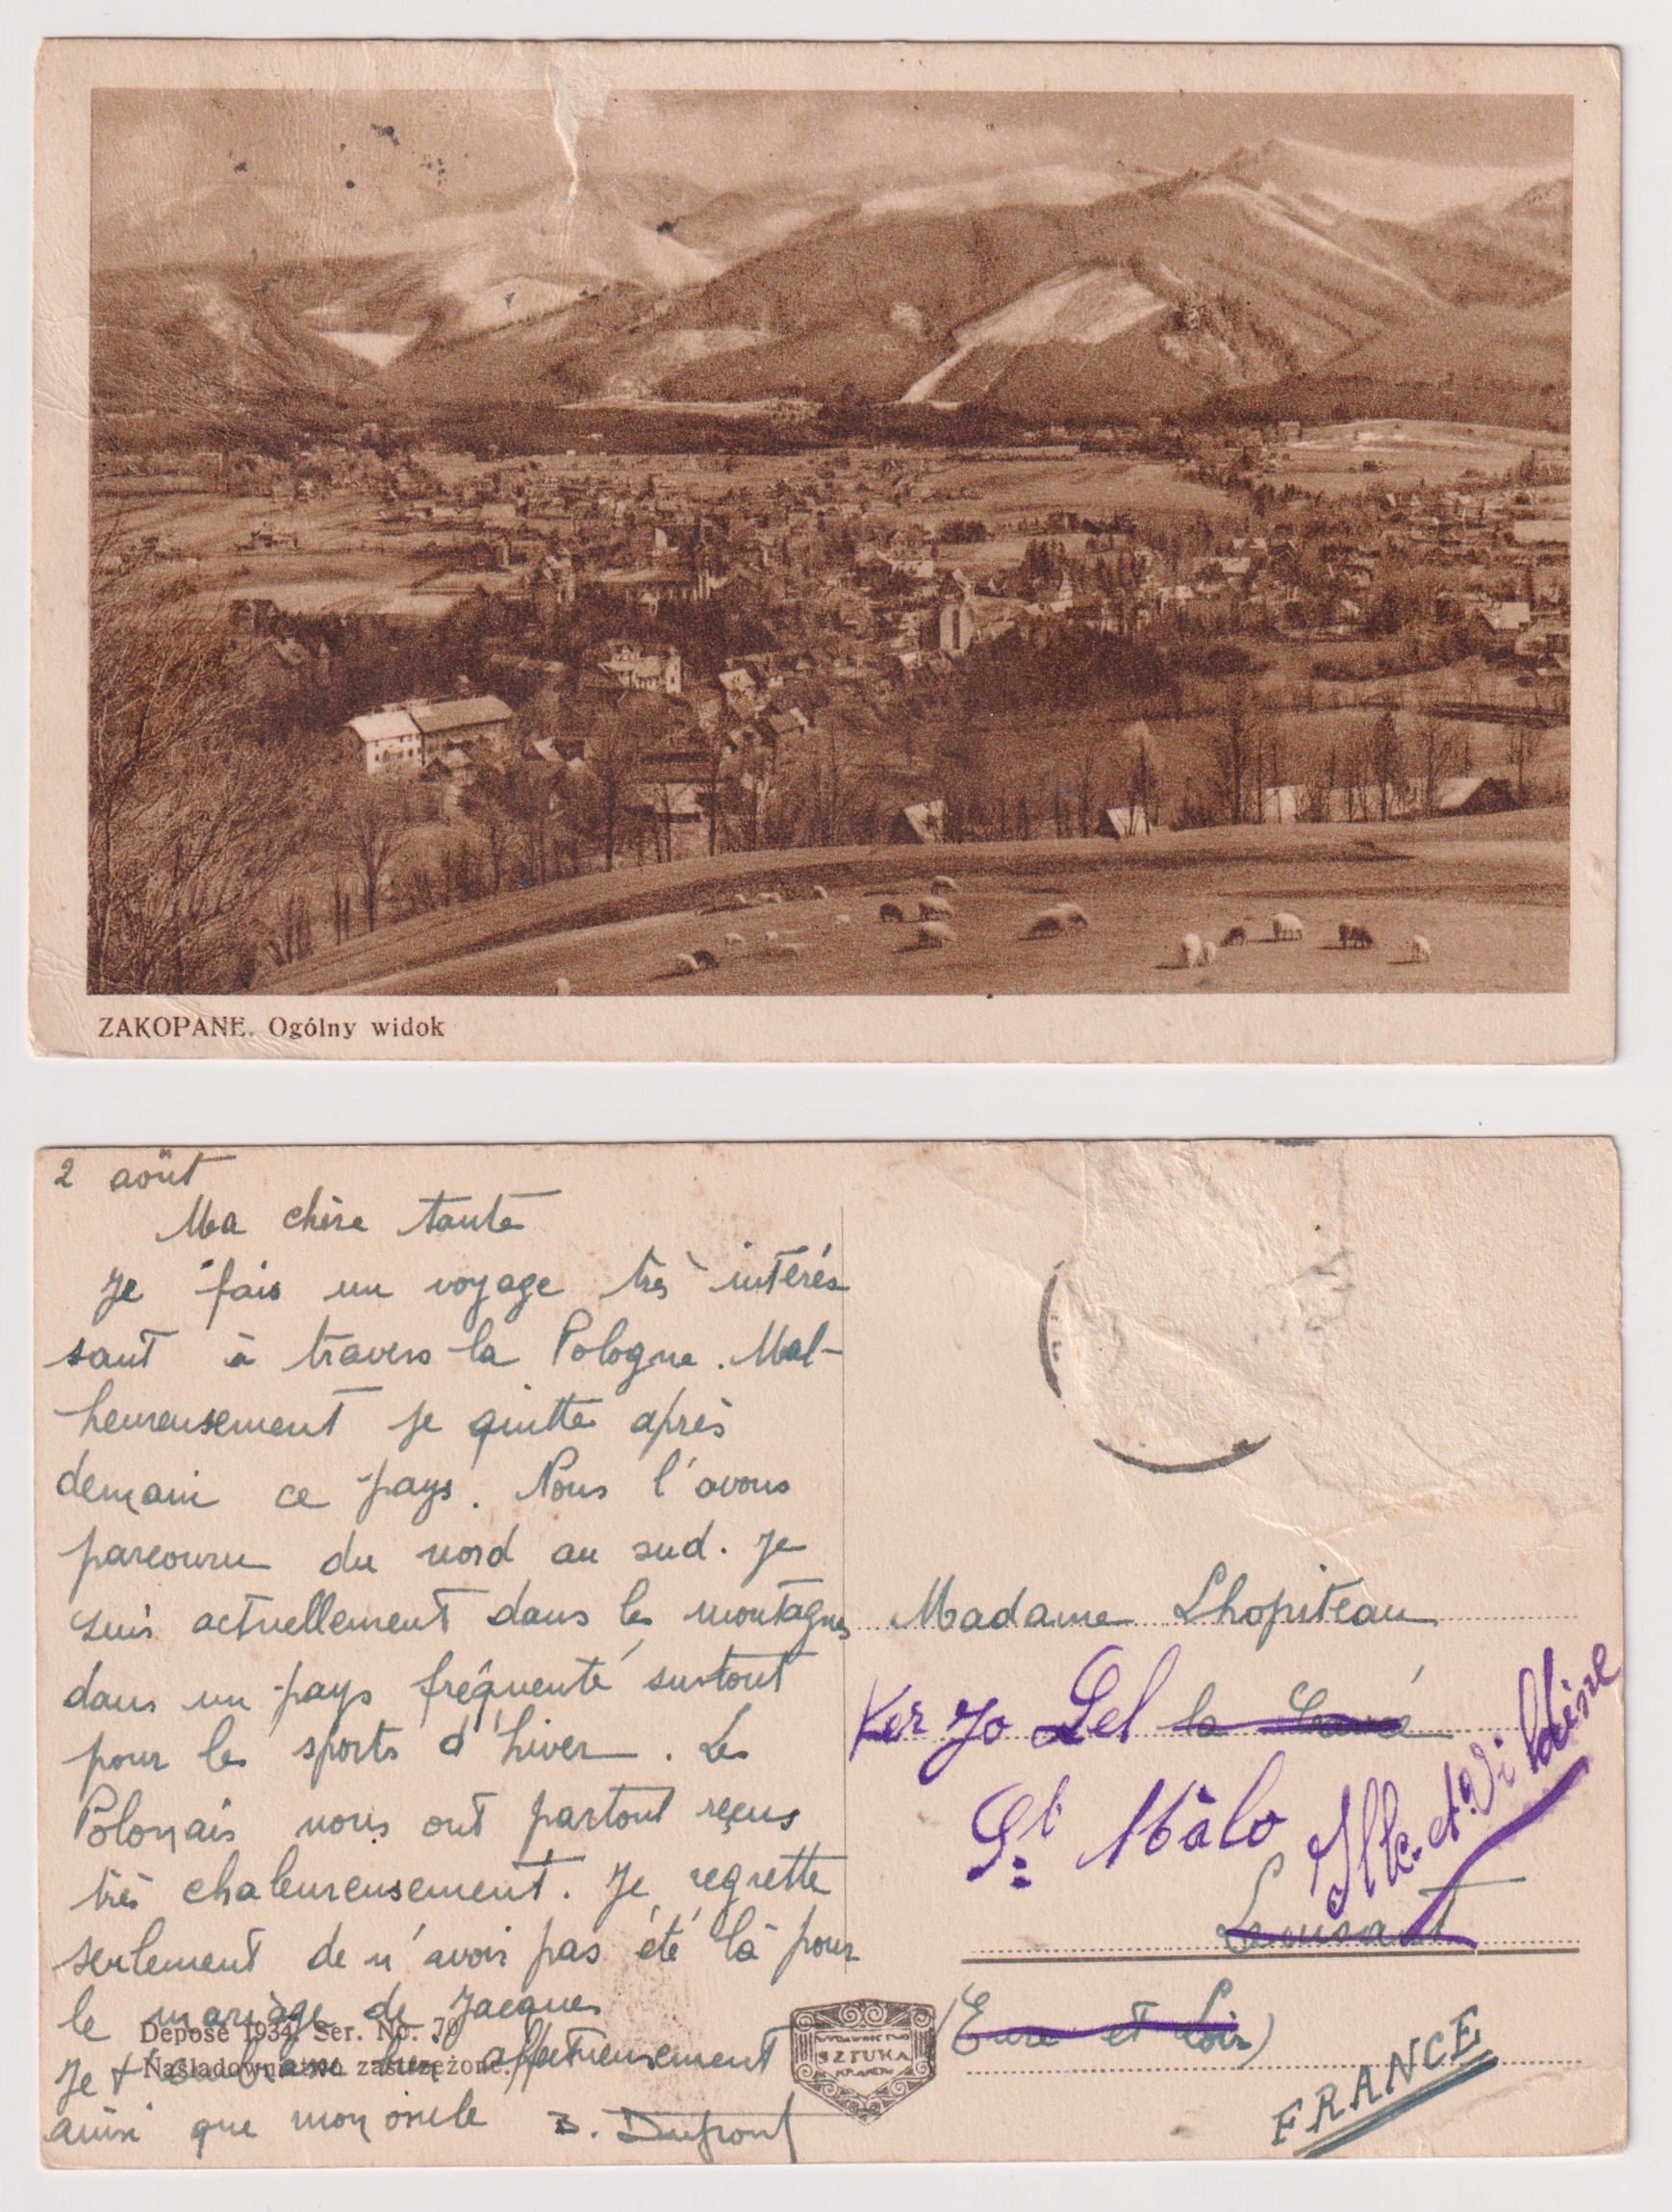 ZAKOPANE. Ogólny widok
2 août
Ma chère tante
Je fais un voyage très intéres
sant à travers la Pologne. Mal-
heureusement je quitte après
demain ce pays. Nous l'avons
parcouru du nord au sud. Je
suis actuellement dans les montagnes
dans un pays fréquenté surtout
pour les sports d'hiver. Les
Polonais nous ont partout reçus
très chaleureusement. Je regrette
seulement de n'avoir pas été là pour
le mariage de Jacques
Je t'embrasse bien affectueusement
ainsi que mon oncle D. Dupont
Deposé 1934. Ser. No. 70
Naśladownictwo zastrzeżone.
WYDAWNICTWO
SZTUKA
KRAKÓW
Madame Lhopiteau
Ker Jo Lel la
St Mâlo Ille-et-Vilaine
(Eure et Loir)
FRANCE